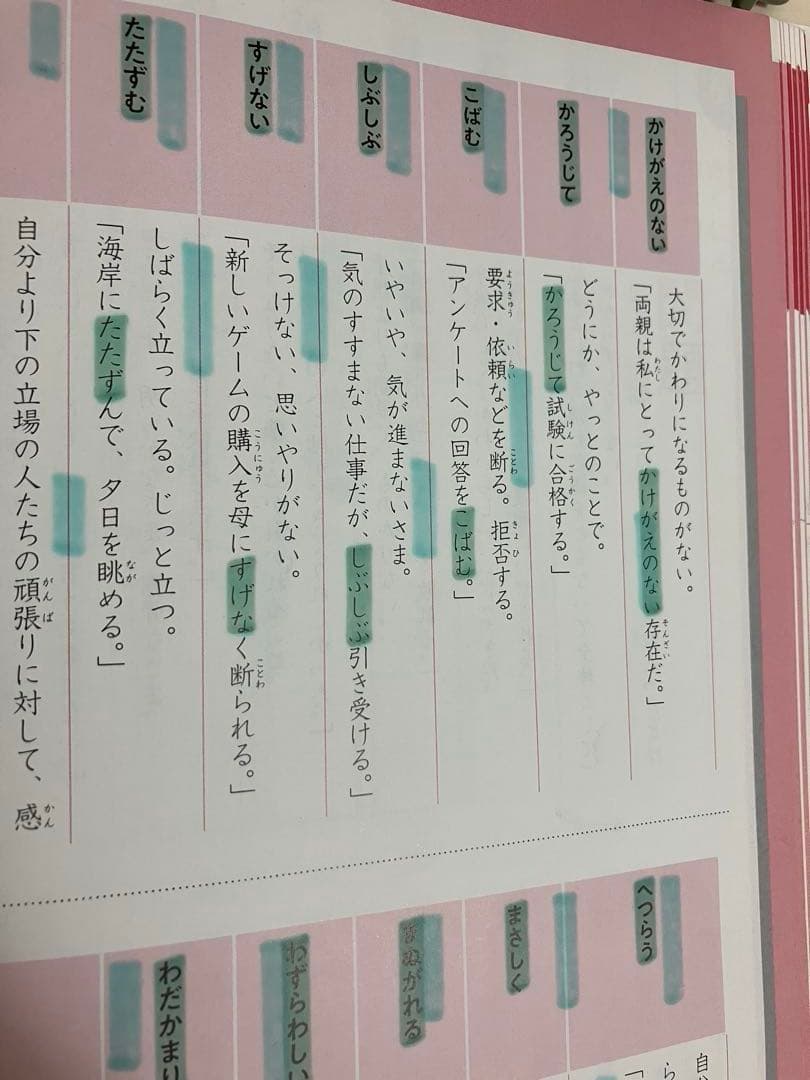 かけがえのない
大切でかわりになるものがない。
「両親は私にとってかけがえのない存在だ。」
かろうじて
どうにか、やっとのことで。
「かろうじて試験に合格する。」
こばむ
要求・依頼などを断る。拒否する。
「アンケートへの回答をこばむ。」
しぶしぶ
いやいや、気が進まないさま。
「気のすすまない仕事だが、しぶしぶ引き受ける。」
すげない
そっけない、思いやりがない。
「新しいゲームの購入を母にすげなく断られる。」
たたずむ
しばらく立っている。じっと立つ。
「海岸にたたずんで、夕日を眺める。」
自分より下の立場の人たちの頑張りに対して、感
へつらう
まさしく
まぬがれる
わずらわしい
わだかまり